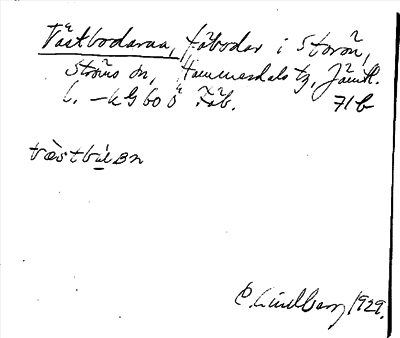 Västbodarna, fäbodar i Storön,
Ströms sn, Hammerdals tg, Jämtl.
l. – kGbo ö Fäb. 71b
væstbúan
C. Lindberg 1929.